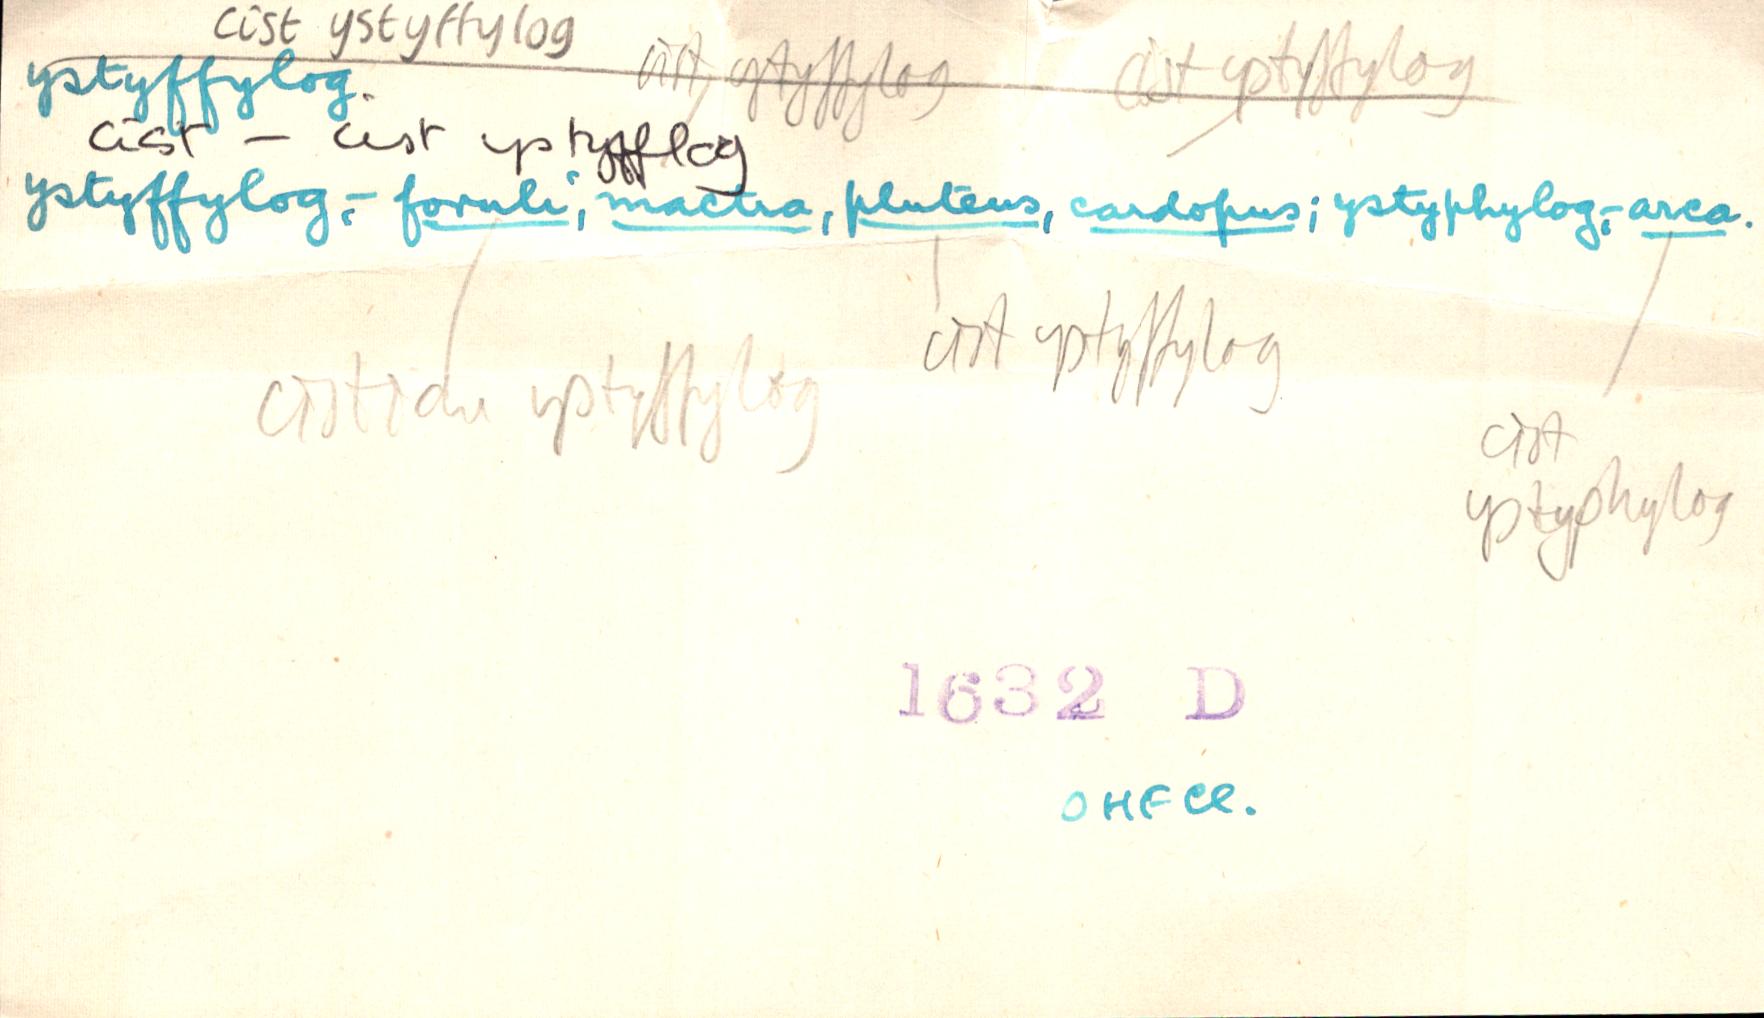 cist ystyffylog
cist ystyffylog cist ystyffylog
ystyffylog.
cist - cist ystyfflog
ystyffylog:- foruli, mactra, pluteus, cardopus; ystyphylog:- arca.
cist ystyffylog
cistiau ystyffylog
cist
ystyphylog
1632 D
OHFCl.